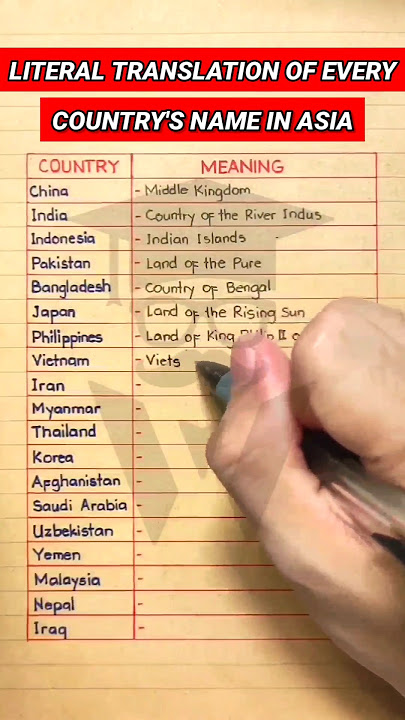 LITERAL TRANSLATION OF EVERY
COUNTRY'S NAME IN ASIA
COUNTRY MEANING
China - Middle Kingdom
India - Country of the River Indus
Indonesia - Indian Islands
Pakistan - Land of the Pure
Bangladesh - Country of Bengal
Japan - Land of the Rising Sun
Philippines - Land of King Philip II
Vietnam - Viets
Iran -
Myanmar -
Thailand -
Korea -
Afghanistan -
Saudi Arabia -
Uzbekistan -
Yemen -
Malaysia -
Nepal -
Iraq -